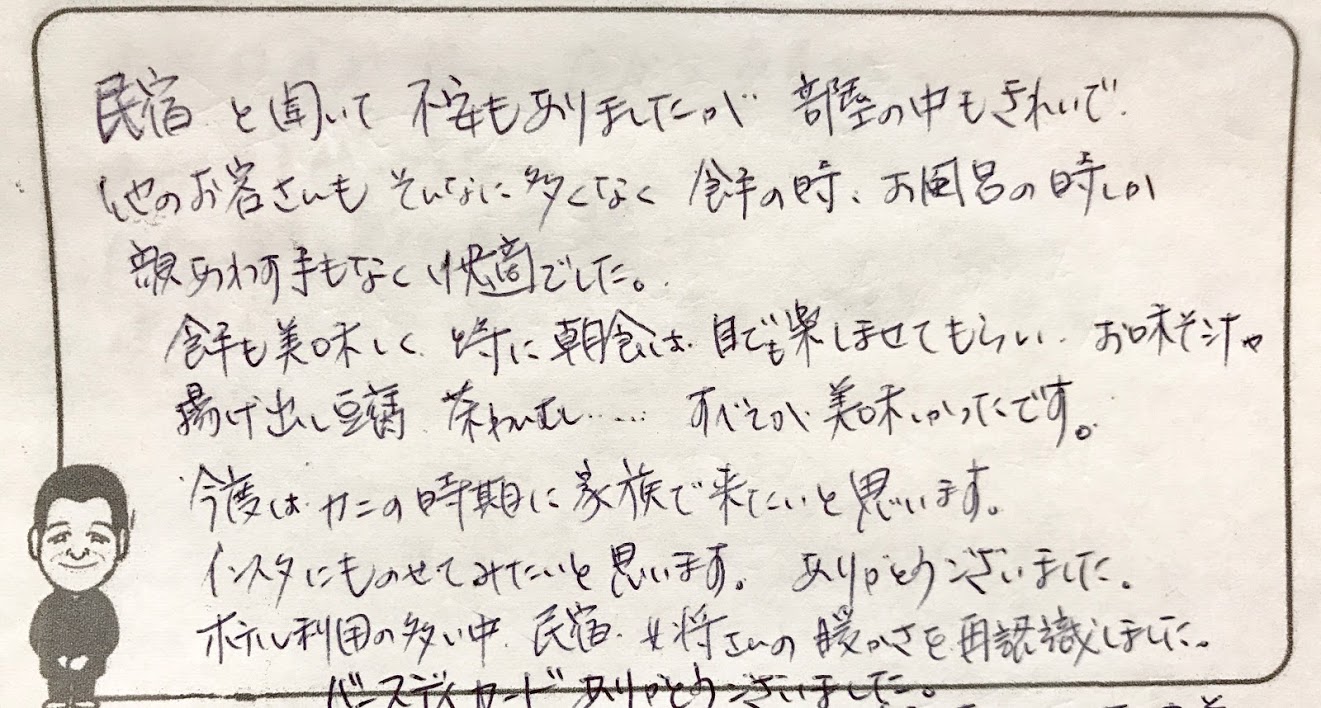 民宿と聞いて 不安もありましたが 部屋の中もきれいで
他のお客さんも そんなに多くなく 食事の時、お風呂の時しか
顔あわす事もなく 快適でした。
食事も美味しく 特に朝食は 目でも楽しませてもらい お味そ汁や
揚げ出し豆腐 茶わんむし…… すべてが美味しかったです。
今度は カニの時期に 家族で来たいと思います。
インスタにものせてみたいと思います。 ありがとうございました。
ホテル利用の多い中 民宿 女将さんの暖かさを再認識しました。
バースディカードありがとうございました。